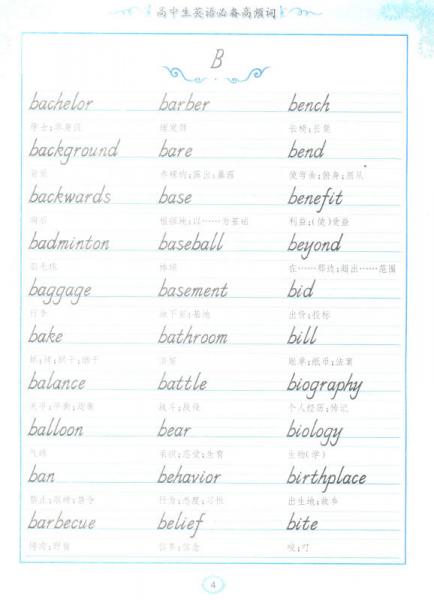 高中生英语必备高频词
B
bachelor barber bench
学士;单身汉 理发师 长椅;长凳
background bare bend
背景 赤裸的;露出;暴露 使弯曲;俯身;屈从
backwards base benefit
向后 根据地;以……为基础 利益;(使)受益
badminton baseball beyond
羽毛球 棒球 在……那边;超出……范围
baggage basement bid
行李 地下室;基地 出价;投标
bake bathroom bill
浴室 账单;纸币;法案
balance battle biography
天平;平衡;均衡 战斗;战役 个人经历;传记
balloon bear biology
气球 承担;忍受;生育 生物(学)
ban behavior birthplace
禁止;取缔;禁令 行为;态度;习性 出生地;故乡
barbecue belief bite
烤肉;野餐 信奉;信念 咬;叮
4